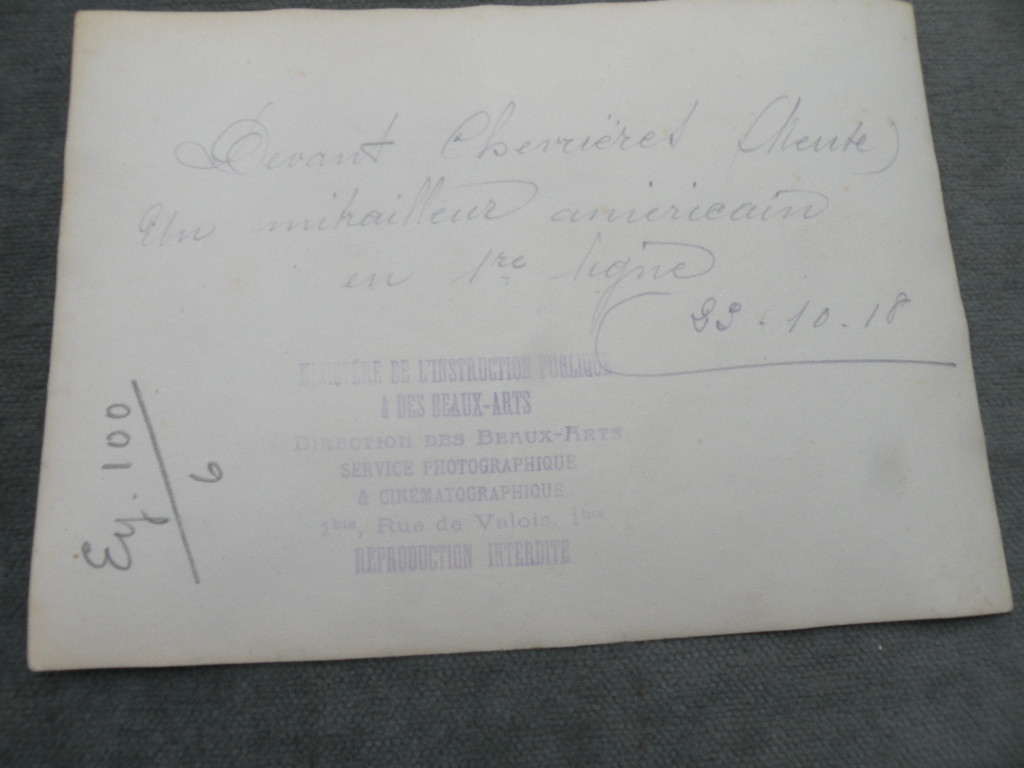 Devant Chevrières (Meuse)
Un mitrailleur américain
en 1re ligne
23.10.18
MINISTÈRE DE L'INSTRUCTION PUBLIQUE
& DES BEAUX-ARTS
DIRECTION DES BEAUX-ARTS
SERVICE PHOTOGRAPHIQUE
& CINÉMATOGRAPHIQUE
1bis, Rue de Valois, 1bis
REPRODUCTION INTERDITE
100
6